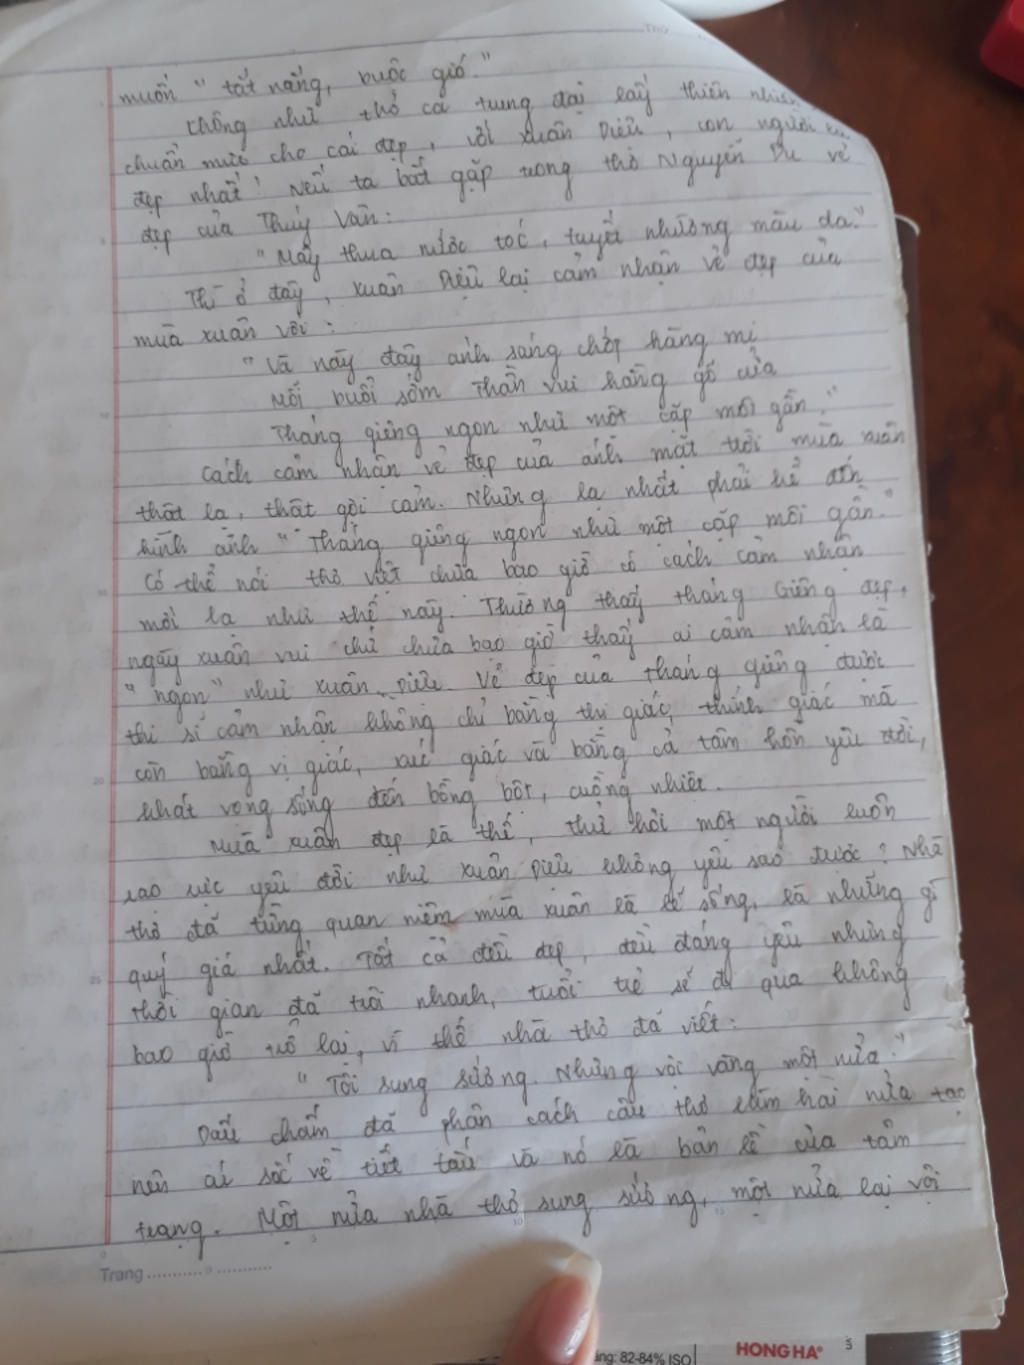 Thứ
muốn "tắt nắng, buộc gió."
Không như thơ ca trung đại lấy thiên nhiên
chuẩn mực cho cái đẹp, với Xuân Diệu, con người
đẹp nhất! Nếu ta bắt gặp trong thơ Nguyễn Du vẻ
đẹp của Thúy Vân:
"Mây thua nước tóc, tuyết nhường màu da."
Thì ở đây, Xuân Diệu lại cảm nhận vẻ đẹp của
mùa xuân với:
"Và này đây ánh sáng chớp hàng mi
Mỗi buổi sớm Thần vui hằng gõ cửa
Tháng giêng ngon như một cặp môi gần."
Cách cảm nhận vẻ đẹp của ánh mặt trời mùa xuân
thật lạ, thật gợi cảm. Nhưng lạ nhất phải kể đến
hình ảnh "Tháng giêng ngon như một cặp môi gần."
Có thể nói thơ Việt chưa bao giờ có cách cảm nhận
mới lạ như thế này. Thường thấy tháng Giêng đẹp,
ngày xuân vui chứ chưa bao giờ thấy ai cảm nhận là
"ngon" như Xuân Diệu. Vẻ đẹp của tháng giêng được
thi sĩ cảm nhận không chỉ bằng thị giác, thính giác mà
còn bằng vị giác, xúc giác và bằng cả tâm hồn yêu đời,
khát vọng sống đến bồng bột, cuồng nhiệt.
Mùa xuân đẹp là thế, thử hỏi một người luôn
rạo rực yêu đời như Xuân Diệu không yêu sao được? Nhà
thơ đã từng quan niệm mùa xuân là lẽ sống, là những gì
quý giá nhất. Tất cả đều đẹp, đều đáng yêu nhưng
thời gian đã trôi nhanh, tuổi trẻ sẽ đi qua không
bao giờ trở lại, vì thế nhà thơ đã viết:
"Tôi sung sướng. Nhưng vội vàng một nửa."
Dấu chấm đã phân cách câu thơ làm hai nửa tạo
nên cái sốc về tiết tấu và nó là bản lề của tâm
trạng. Một nửa nhà thơ sung sướng, một nửa lại vội
Trang
ng: 82-84% ISO
HONG HA